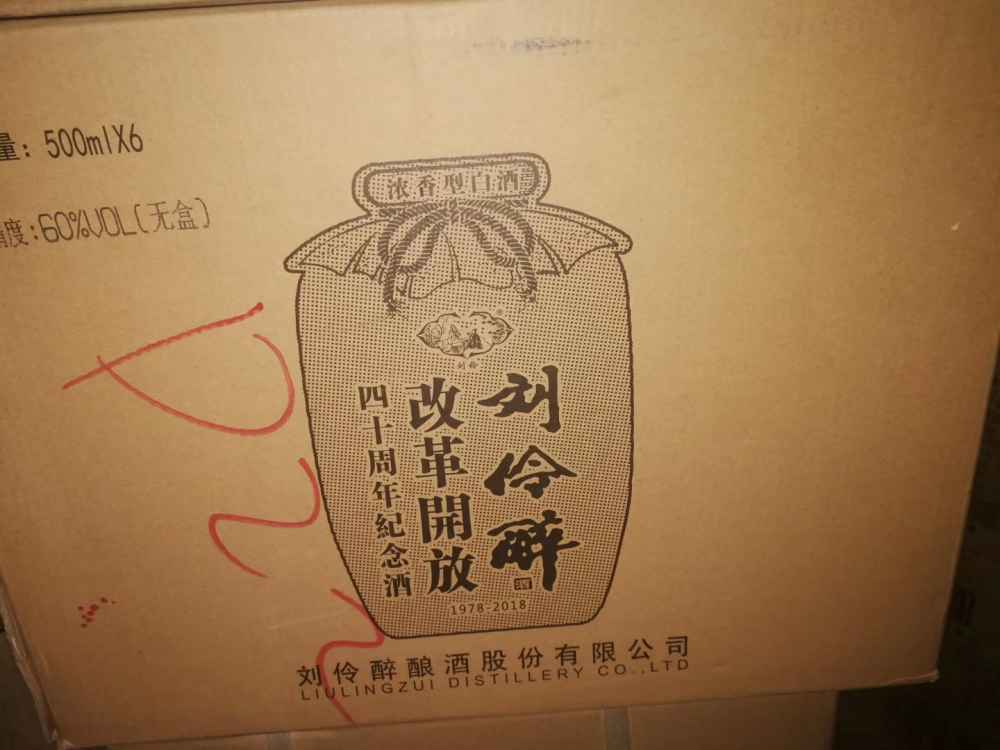 量: 500mlX6
度:60%VOL(无盒)
浓香型白酒
刘伶
刘伶醉
酒
改革開放
四十周年紀念酒
1978-2018
刘伶醉酿酒股份有限公司
LIULINGZUI DISTILLERY CO.,LTD